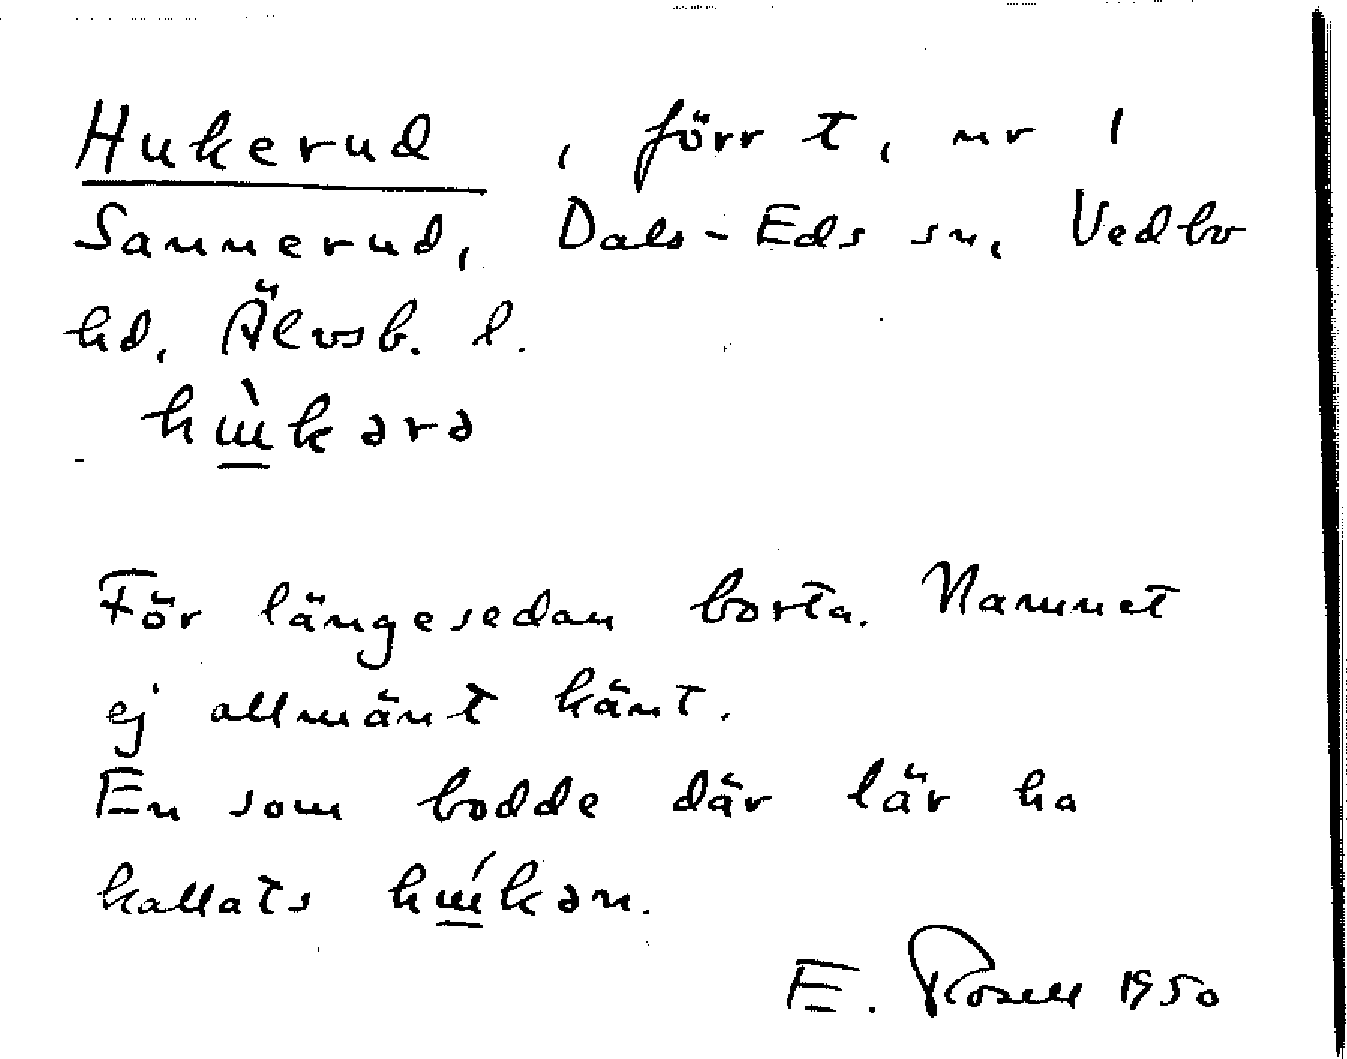 Hukerud, förr t, nr 1
Sannerud, Dals-Eds sn, Vedbo
hd, Älvsb. l.
hɯ̱̀kərə
För längesedan borta. Namnet
ej allmänt känt.
En som bodde där lär ha
kallats hɯ̱́kən.
E. Rosell 1950